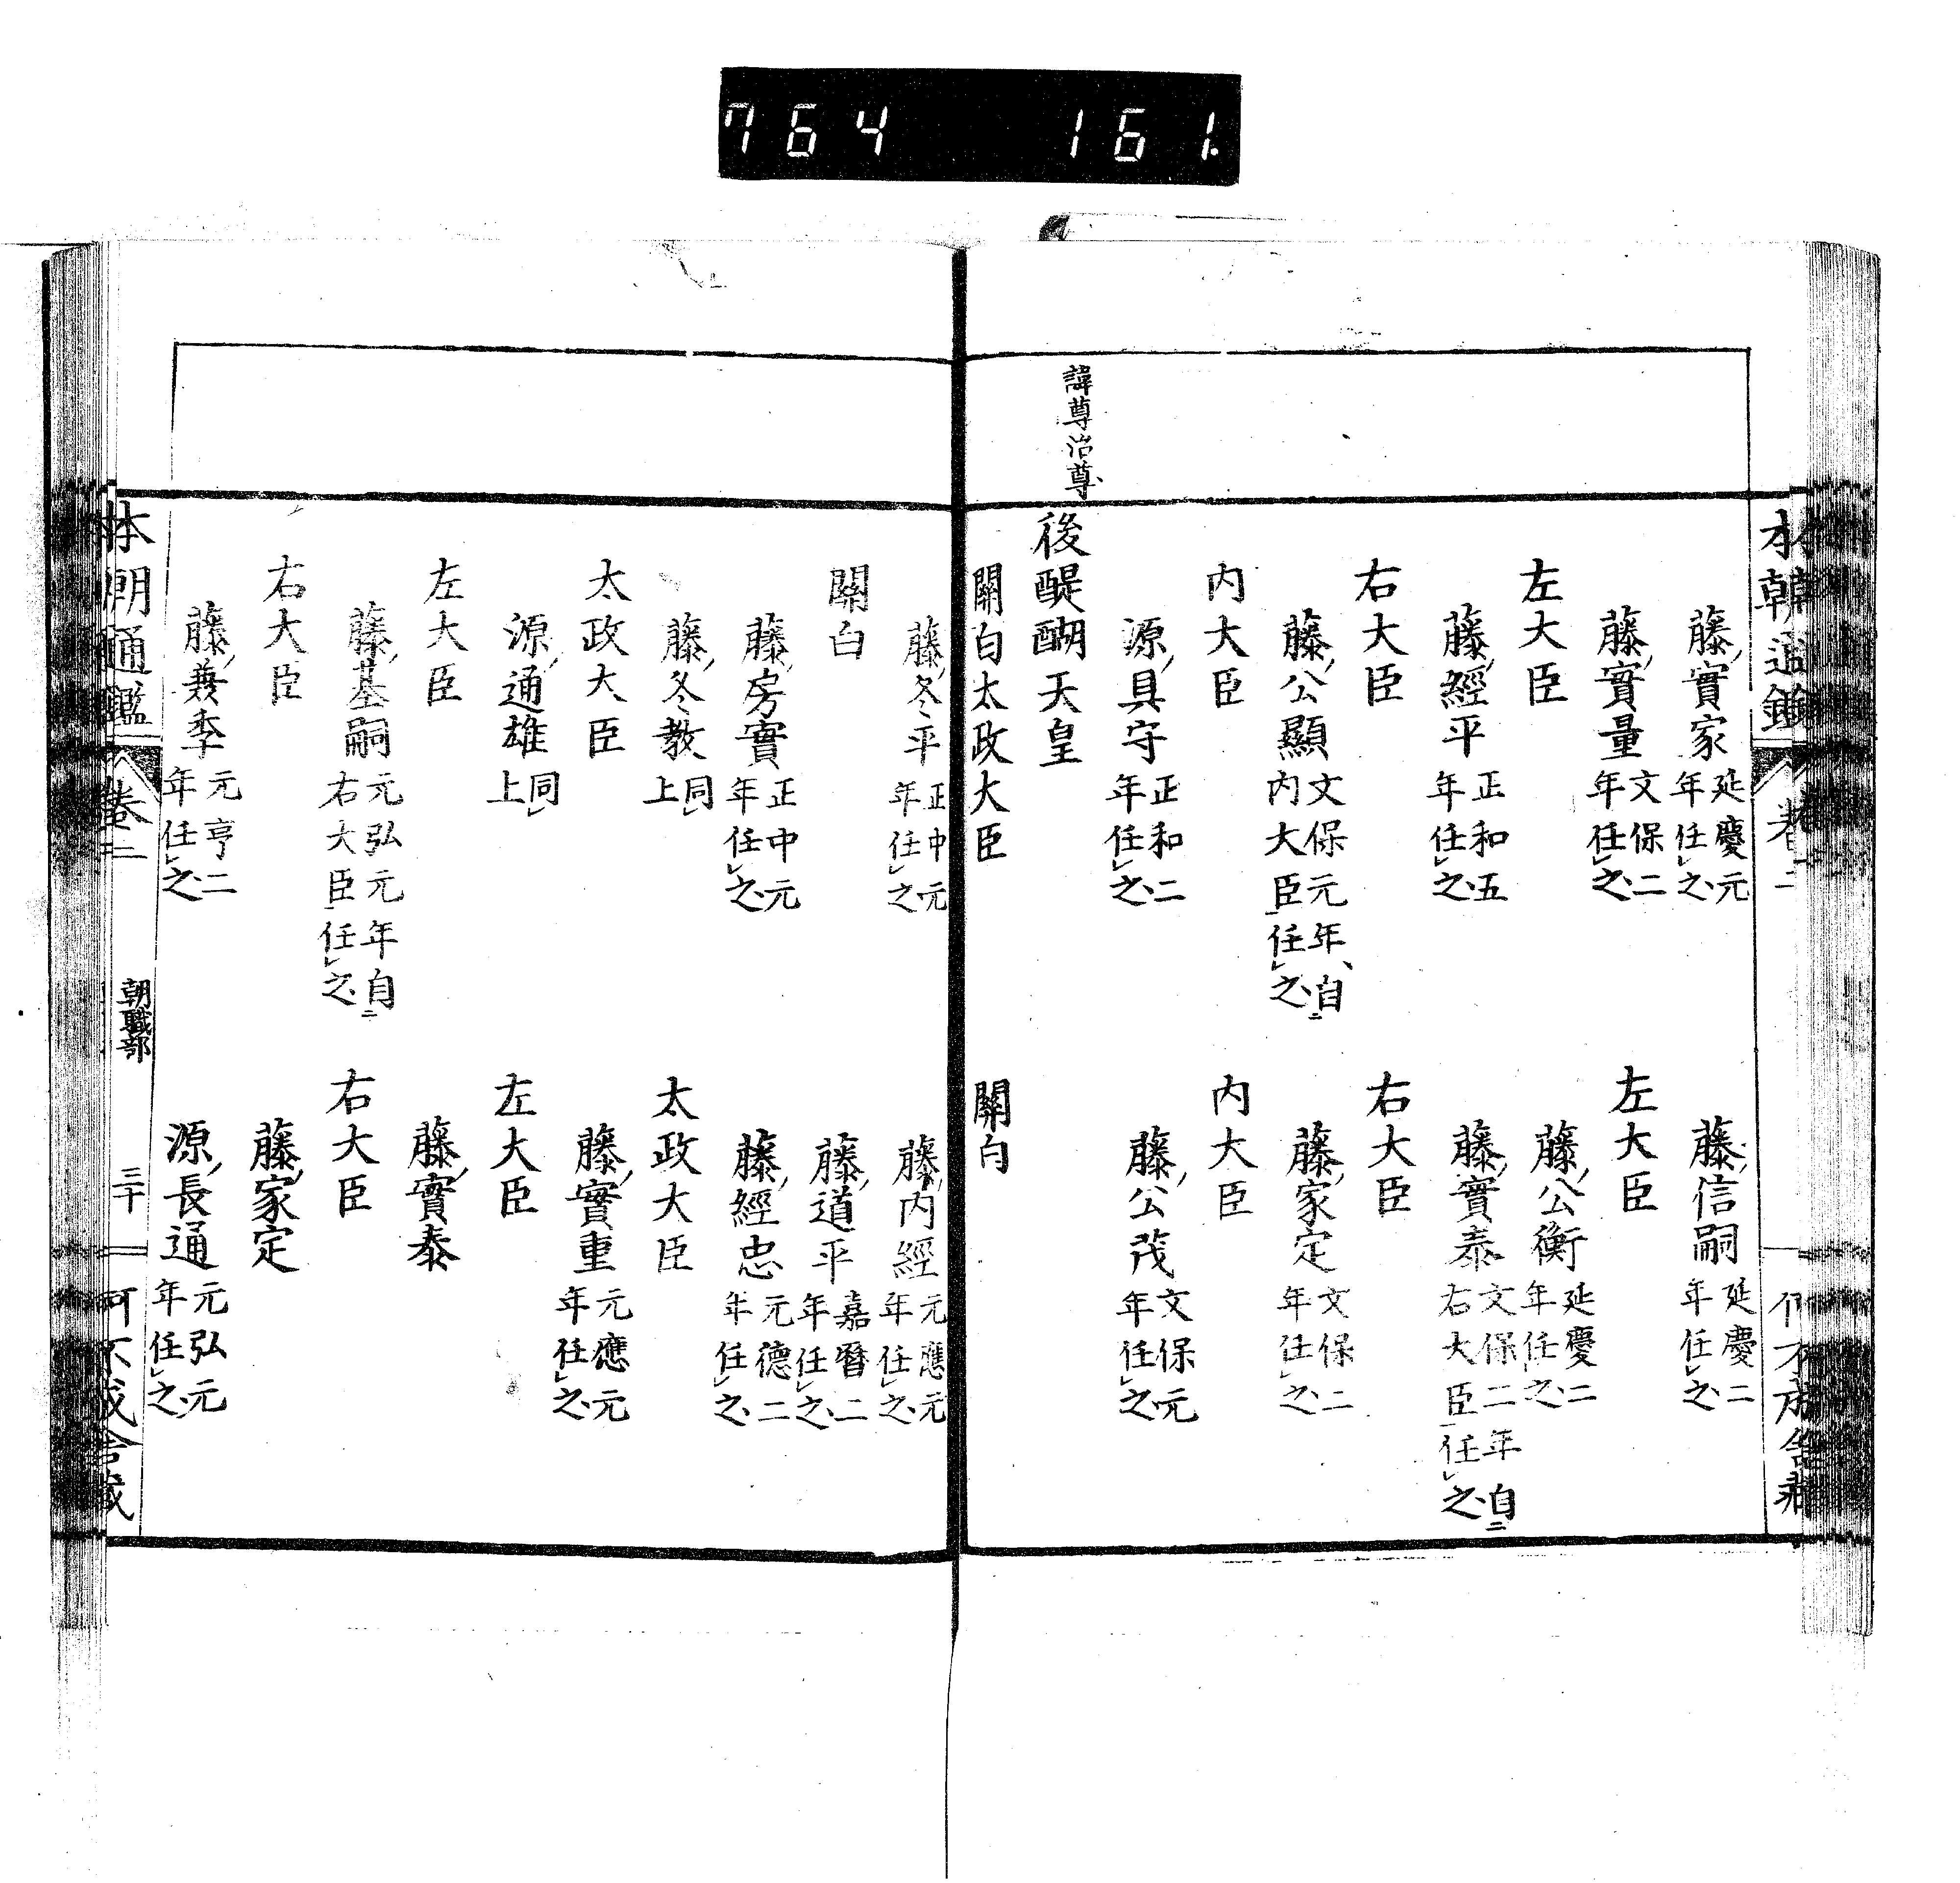 764 161.
本朝通鑑 卷二
藤實家 延慶元年任之
藤信嗣 延慶二年任之
藤實量 文保二年任之
左大臣
左大臣
藤公衡 延慶二年任之
藤經平 正和五年任之
藤實泰 文保二年自右大臣任之
右大臣
右大臣
藤公顯 文保元年自內大臣任之
藤家定 文保二年任之
內大臣
內大臣
源具守 正和二年任之
藤公茂 文保元年任之
諱尊治尊
後醍醐天皇
關白太政大臣
關白
藤冬平 正中元年任之
藤內經 元應元年任之
關白
藤道平 嘉曆二年任之
藤房實 正中元年任之
藤經忠 元德二年任之
藤冬教 同上
太政大臣
太政大臣
藤實重 元應元年任之
源通雄 同上
左大臣
左大臣
藤實泰
藤基嗣 元弘元年自右大臣任之
右大臣
右大臣
藤家定
藤兼季 元亨二年任之
源長通 元弘元年任之
本朝通鑑 卷二 朝職部 三十 可不成舍藏